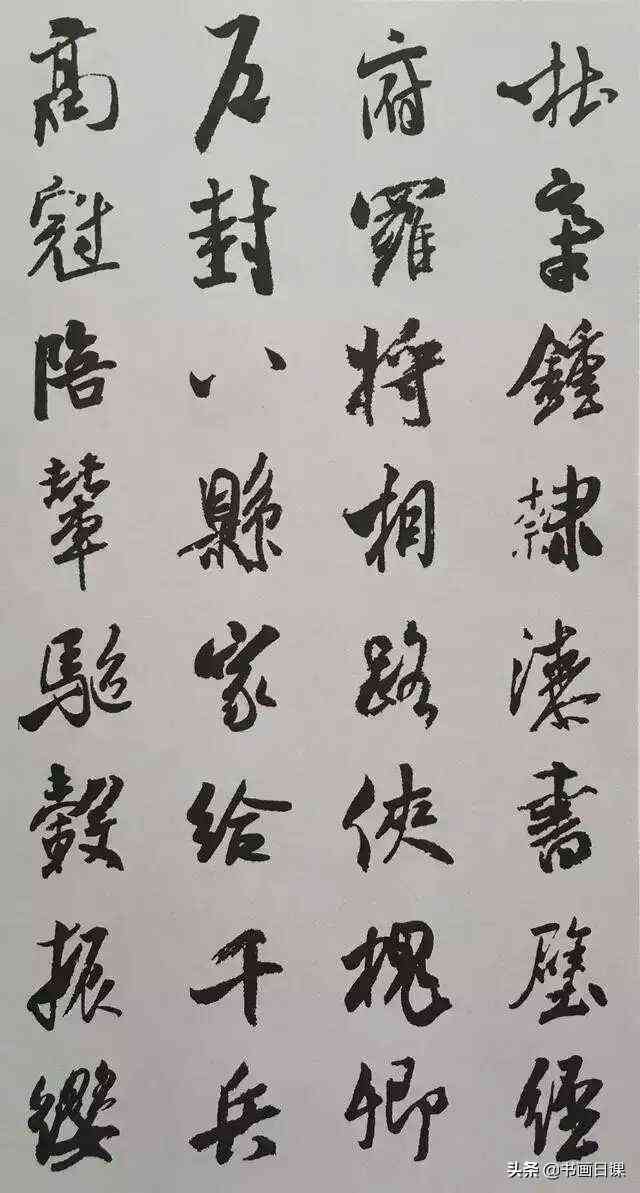 杜槀鍾隸漆書壁經
府羅將相路俠槐卿
户封八縣家給千兵
高冠陪輦驅轂振纓
头条 @书画日课